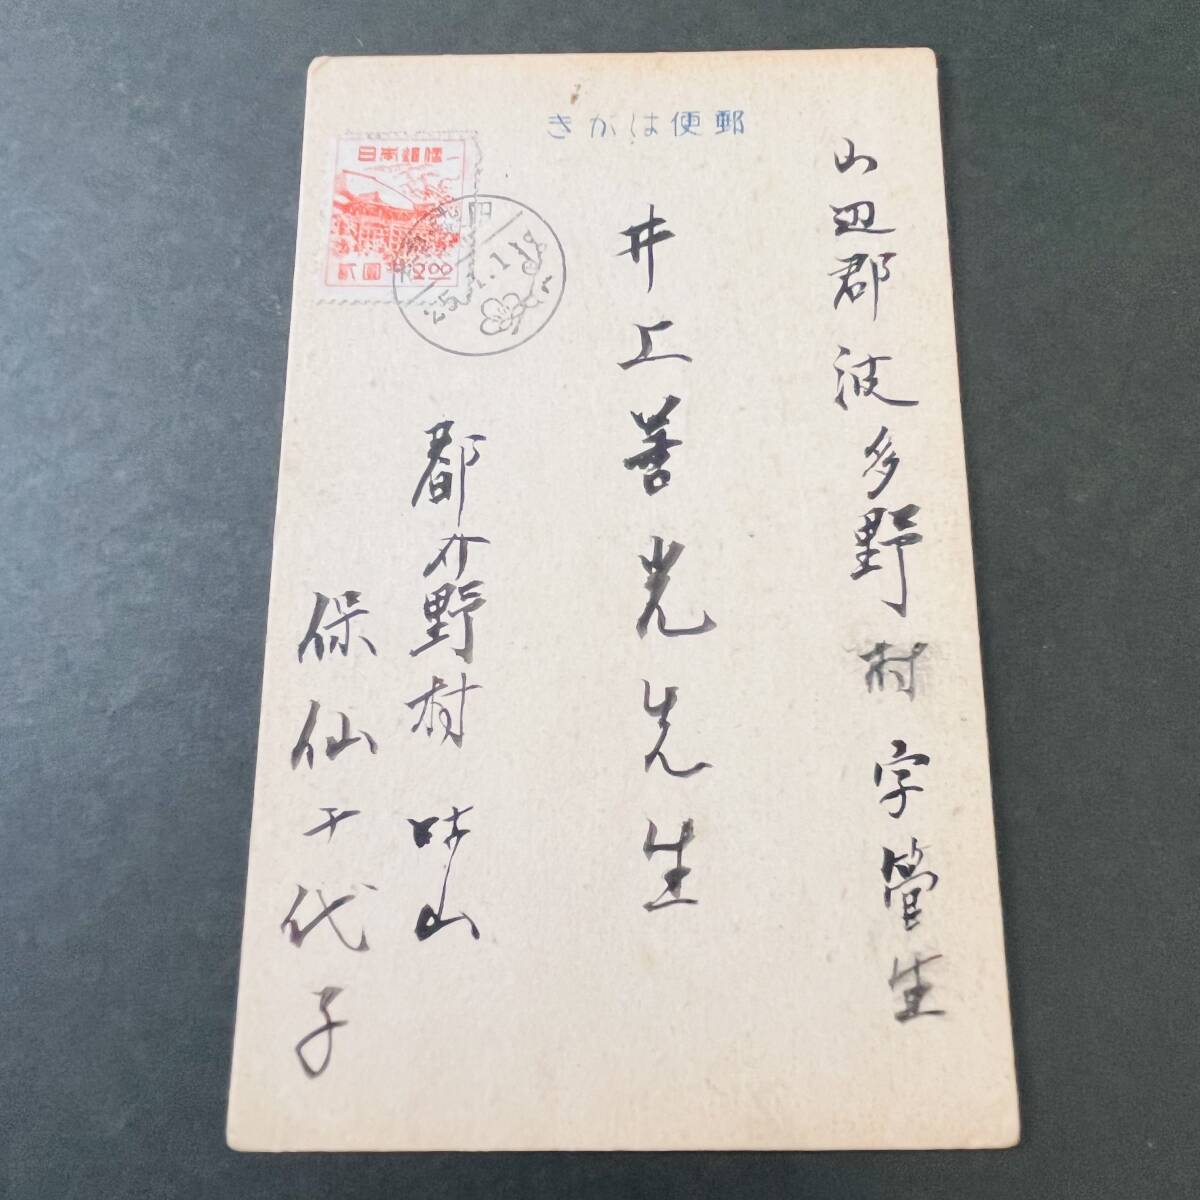 郵便はがき
日本郵便
弐圓 2.00
25.1.1
山辺郡波多野村字菅生
井上善光先生
都介野村吐山
保仙千代子